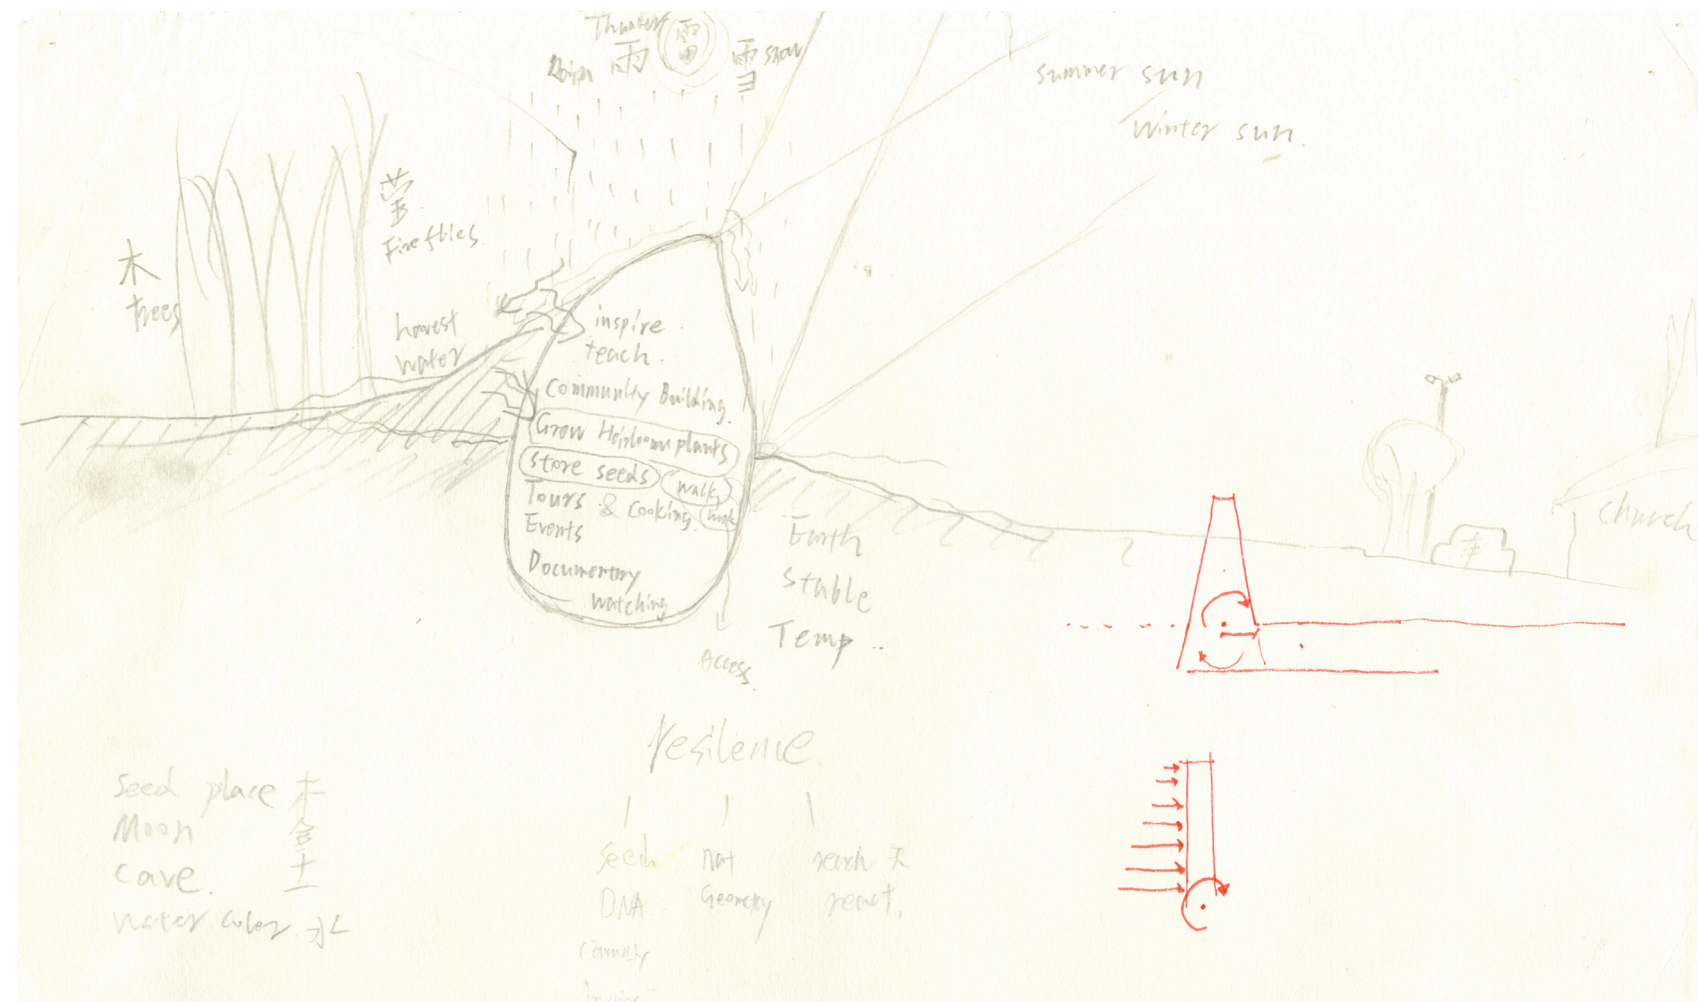 Thunder
雷
雨
雪 snow
summer sun
Winter sun.
萤
Fireflies
木
trees
harvest
water
inspire
teach.
Community Building.
Grow Heirloom plants
store seeds
walk
Tours & Cooking
Events
Documentary
watching
Earth
Stable
Temp ..
Access
church
resilence
Seed place 木
Moon 金
cave. 土
water color. 水
Seed
DNA
Geometry
react,